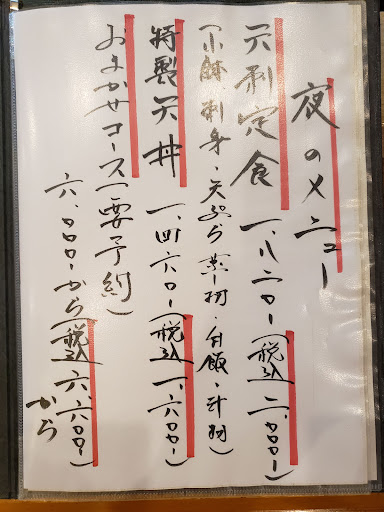 夜のメニュー
天刺定食 一、八二〇ー(税込 二、〇〇〇ー)
(小鉢・刺身・天ぷら 蒸し物・白飯・汁物)
特製天丼 一、四六〇ー(税込 一、六〇〇ー)
おまかせコース(要予約)
六、〇〇〇ーから(税込 六、六〇〇ー)から